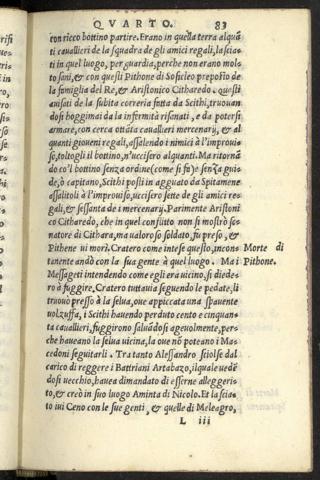 QVARTO. 83
con ricco bottino partire. Erano in quella terra alquã
ti cavallieri de la squadra de gli amici regali, lascia-
ti in quel luogo, per guardia, perche non erano mol-
to sani, & con questi Pithone di Sosicleo preposto de
la famiglia del Re, & Aristonico Citharedo. Questi
auisati de la subita correria fatta da Scithi, trouuan
dosi hoggimai da la infermità risanati, e da potersi
armare, con cerca ottãta cauallieri mercenarij, & al
quanti giouẽni regali, assalendo i nimici à l'improui-
so, toltogli il bottino, n'uccisero alquanti. Ma ritornã
do co'l bottino senza ordine (come si fa) e senza gui-
de, ò capitano, Scithi posti in agguato da Spitamene
assalitoli à l'improuiso, uccisero sette de gli amici re-
gali, & sessanta de i mercenarij. Parimente Aristoni
co Citharedo, che in quel conflitto non si mostrò so-
natore di Cithara, ma ualoroso soldato, fu preso, &
Pithene ui morì. Cratero come intese questo, incon-
tanente andò con la sua gente à quel luogo. Ma i
Messageti intendendo come egli era uicino, si diede-
ro à fuggire. Cratero tuttauia seguendo le pedate, li
truouò presso à la selua, oue appiccata una spauente
uol zuffa, i Scithi hauendo perduto cento e cinquan-
ta cauallieri, fuggirono saluãdosi ageuolmente, per-
che haueano la selua uicina, la oue nõ poteano i Ma-
cedoni seguitarli. Tra tanto Alessandro sciolse dal
carico di reggere i Battriani Artabazo, ilquale uedẽ
dosi uecchio, hauea dimandato di esserne alleggeri-
to, & creò in suo luogo Aminta di Nicolo. Et lascia-
to iui Ceno con le sue genti, & quelle di Meleagro,
L iii
Morte di
Pithone.